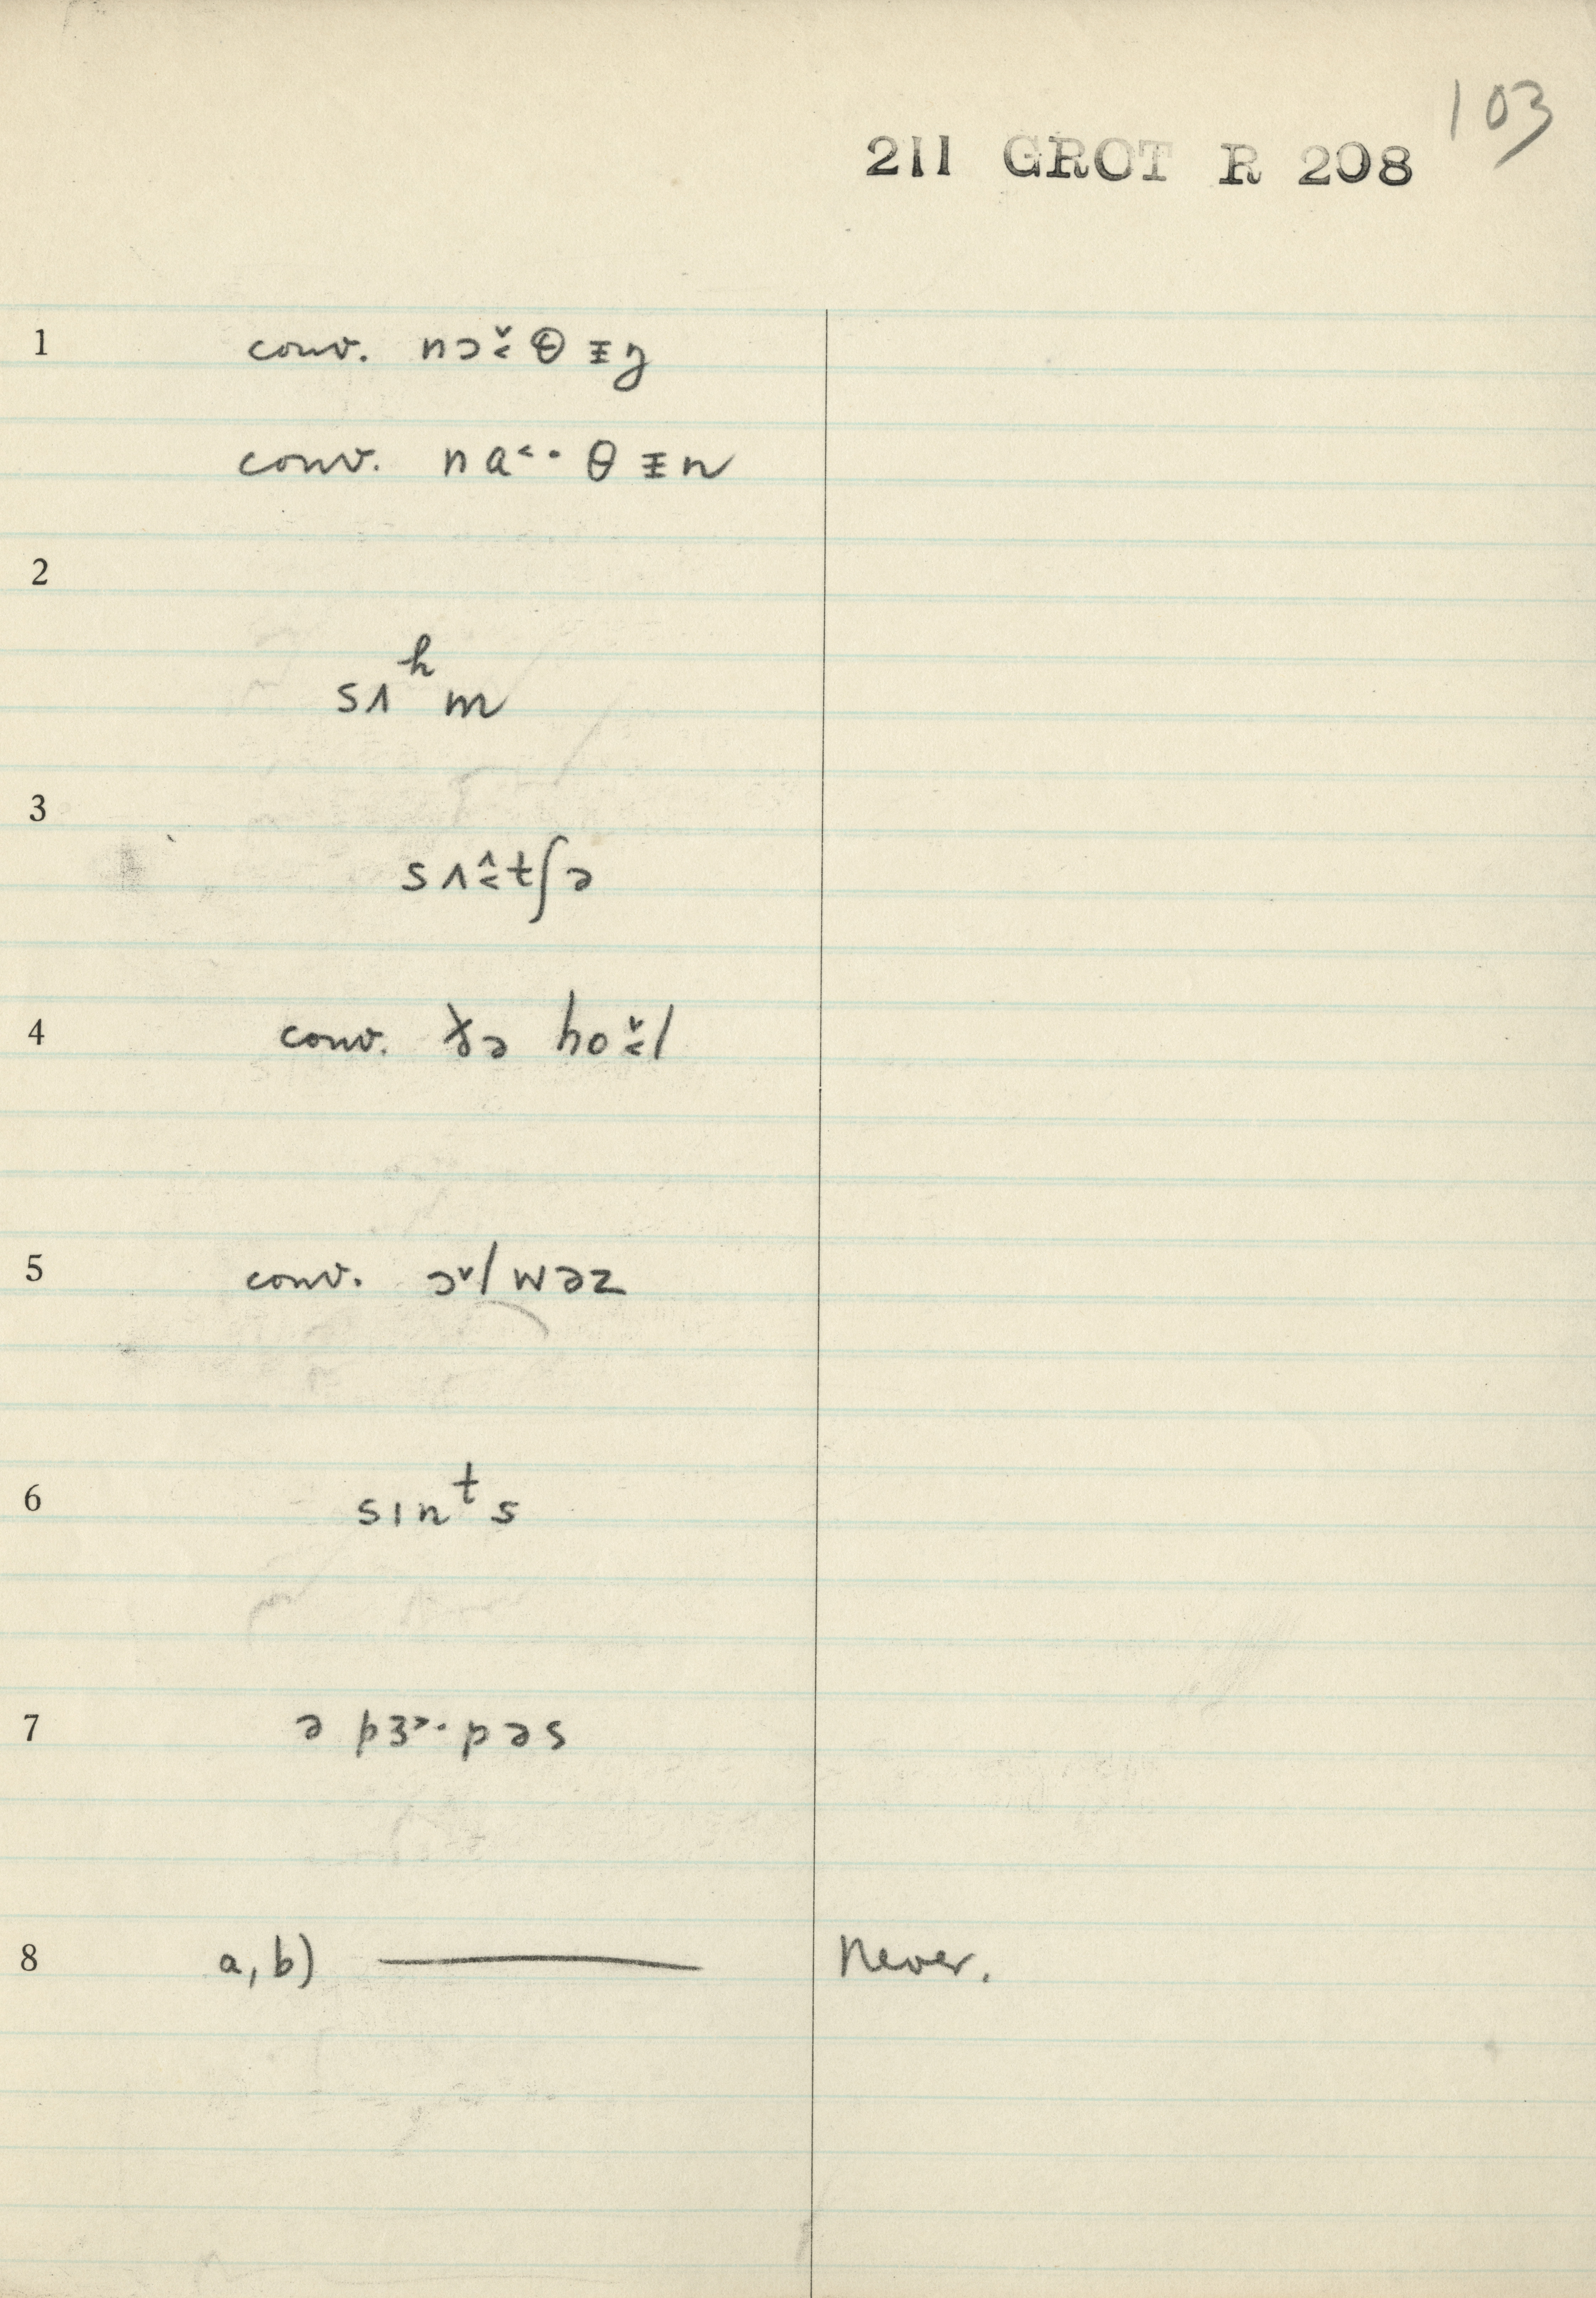 103
211 GROT R 208
1 conv. nɔ˯̌θᵻŋ
conv. na˂·θᵻn
2
sʌʰm
3
sʌ˰˂tʃə
4 conv. ðə ho˯˂l
5 conv. ɔ˅lwəz
6 sɪnᵗs
7 ə pɜ˃·pəs
8 a, b) ——— Never.